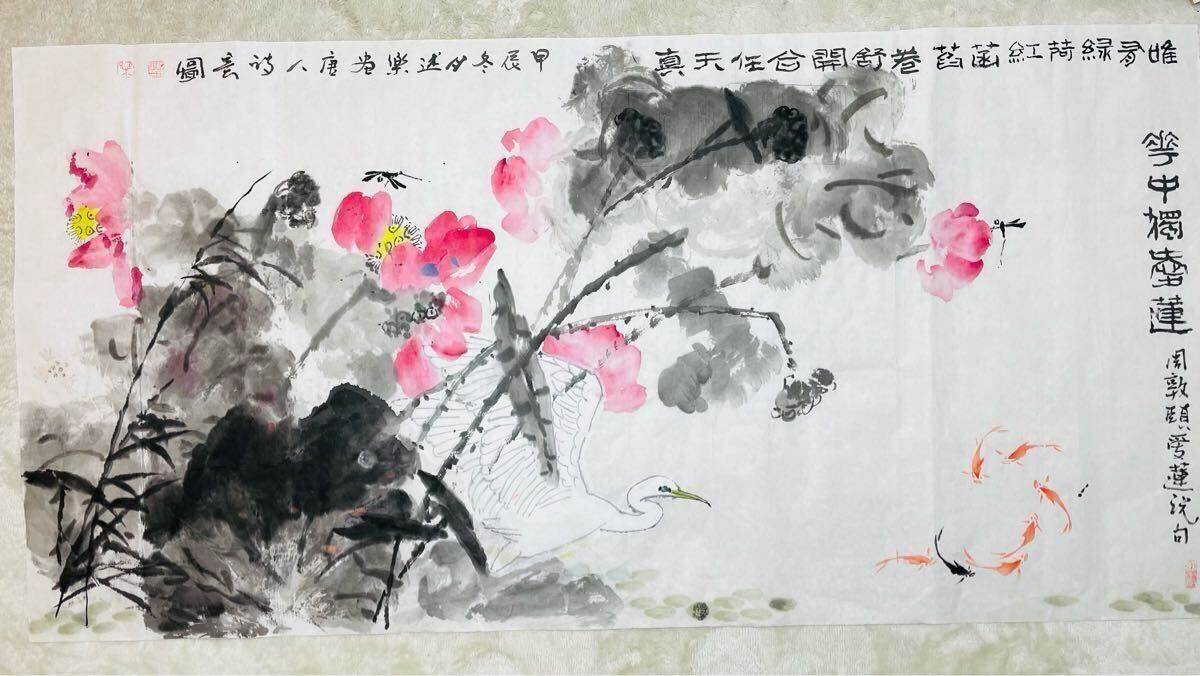 唯有綠荷紅菡萏卷舒開合任天真
甲辰冬述樂唐人詩意圖
華中獨愛蓮
周敦頤愛蓮説句